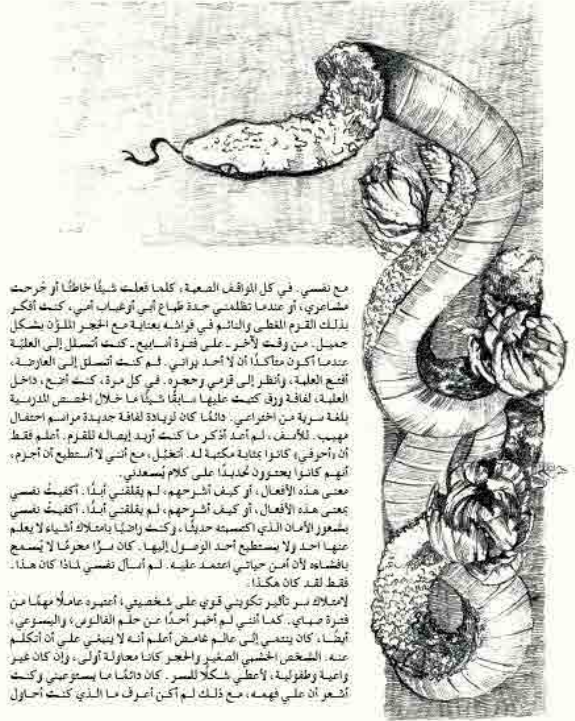 مع نفسي. في كل المواقف الصعبة، كلما فعلت شيئًا خاطئًا أو جُرحت
مشاعري، أو عندما تظلمني حدة طباع أبي أو غياب أمي، كنت أفكر
بذلك القزم المغطى والنائم في فراشه بعناية مع الحجر الملوّن بشكل
جميل. من وقت لآخر ـ على فترة أسابيع ـ كنت أتسلل إلى العلّية
عندما أكون متأكدًا أن لا أحد يراني. ثم كنت أتسلق إلى العارضة،
أفتح العلبة، وأنظر إلى قزمي وحجره. في كل مرة، كنت أضع، داخل
العلبة، لفافة ورق كتبت عليها سابقًا شيئًا ما خلال الحصص المدرسية
بلغة سرية من اختراعي. دائمًا كان لزيادة لفافة جديدة مراسم احتفال
مهيب. للأسف، لم أعد أذكر ما كنت أريد إيصاله للقزم. أعلم فقط
أن (أحرفي) كانوا بمثابة مكتبة له. أتخيّل، مع أنني لا أستطيع أن أجزم،
أنهم كانوا يحتوون تحديدًا على كلام يُسعدني.
معنى هذه الأفعال، أو كيف أشرحهم، لم يقلقني أبدًا. أكفيتُ نفسي
بمعنى هذه الأفعال، أو كيف أشرحهم، لم يقلقني أبدًا. أكفيتُ نفسي
بشعور الأمان الذي اكتسبته حديثًا، وكنت راضيًا بامتلاك أشياء لا يعلم
عنها أحد ولا يستطيع أحد الوصول إليها. كان سرًا محرمًا لا يُسمح
بإفشاءه لأن أمن حياتي اعتمد عليه. لم أسأل نفسي لماذا كان هذا.
فقط لقد كان هكذا.
لامتلاك سر تأثير تكويني قوي على شخصيتي، أعتبره عاملًا مهمًا من
فترة صباي. كما أنني لم أخبر أحدًا عن حلم الفالوس، واليسوعي،
أيضًا، كان ينتمي إلى عالم غامض أعلم أنه لا ينبغي علي أن أتكلم
عنه. الشخص الخشبي الصغير والحجر كانا محاولة أولى، وإن كان غير
واعية وطفولية، لأعطي شكلًا للسر. كان دائمًا ما يستوعبني وكنت
أشعر أن علي فهمه، مع ذلك لم أكن أعرف ما الذي كنت أحاول